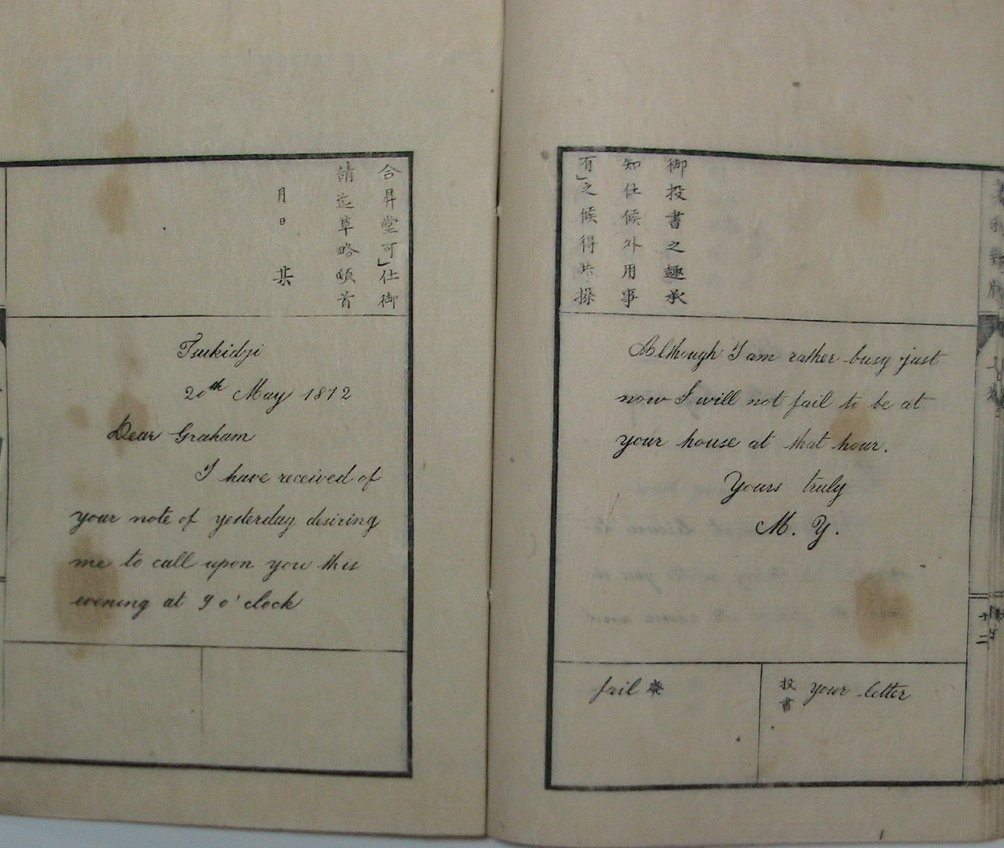 合昇堂可」仕御
請迄草略頓首
月日 某
Tsukidji
20th May 1872
Dear Graham
I have received of
your note of yesterday desiring
me to call upon you this
evening at 9 o'clock
御投書之趣承
知仕候外用事
有」之候得共操
Although I am rather busy just
now I will not fail to be at
your house at that hour.
Yours truly
M. Y.
fail
投書 your letter
十二